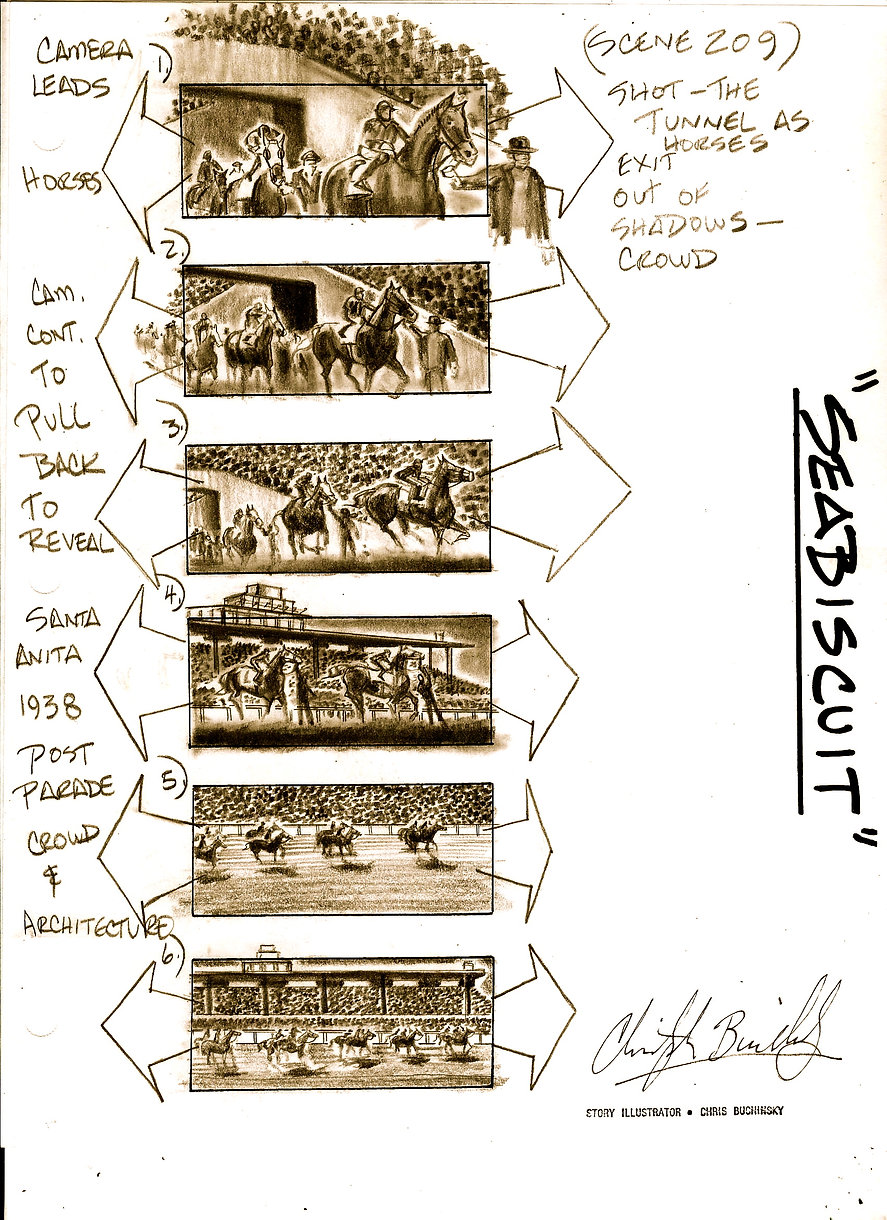 CAMERA
LEADS
HORSES
1.)
(SCENE 209)
SHOT - THE
TUNNEL AS
HORSES
EXIT
OUT OF
SHADOWS —
CROWD
2.)
CAM.
CONT.
TO
PULL
BACK
TO
REVEAL
3.)
4.)
SANTA
ANITA
1938
POST
PARADE
CROWD
&
ARCHITECTURE
5.)
6.)
"SEABISCUIT"
Christopher Buchinsky
STORY ILLUSTRATOR • CHRIS BUCHINSKY